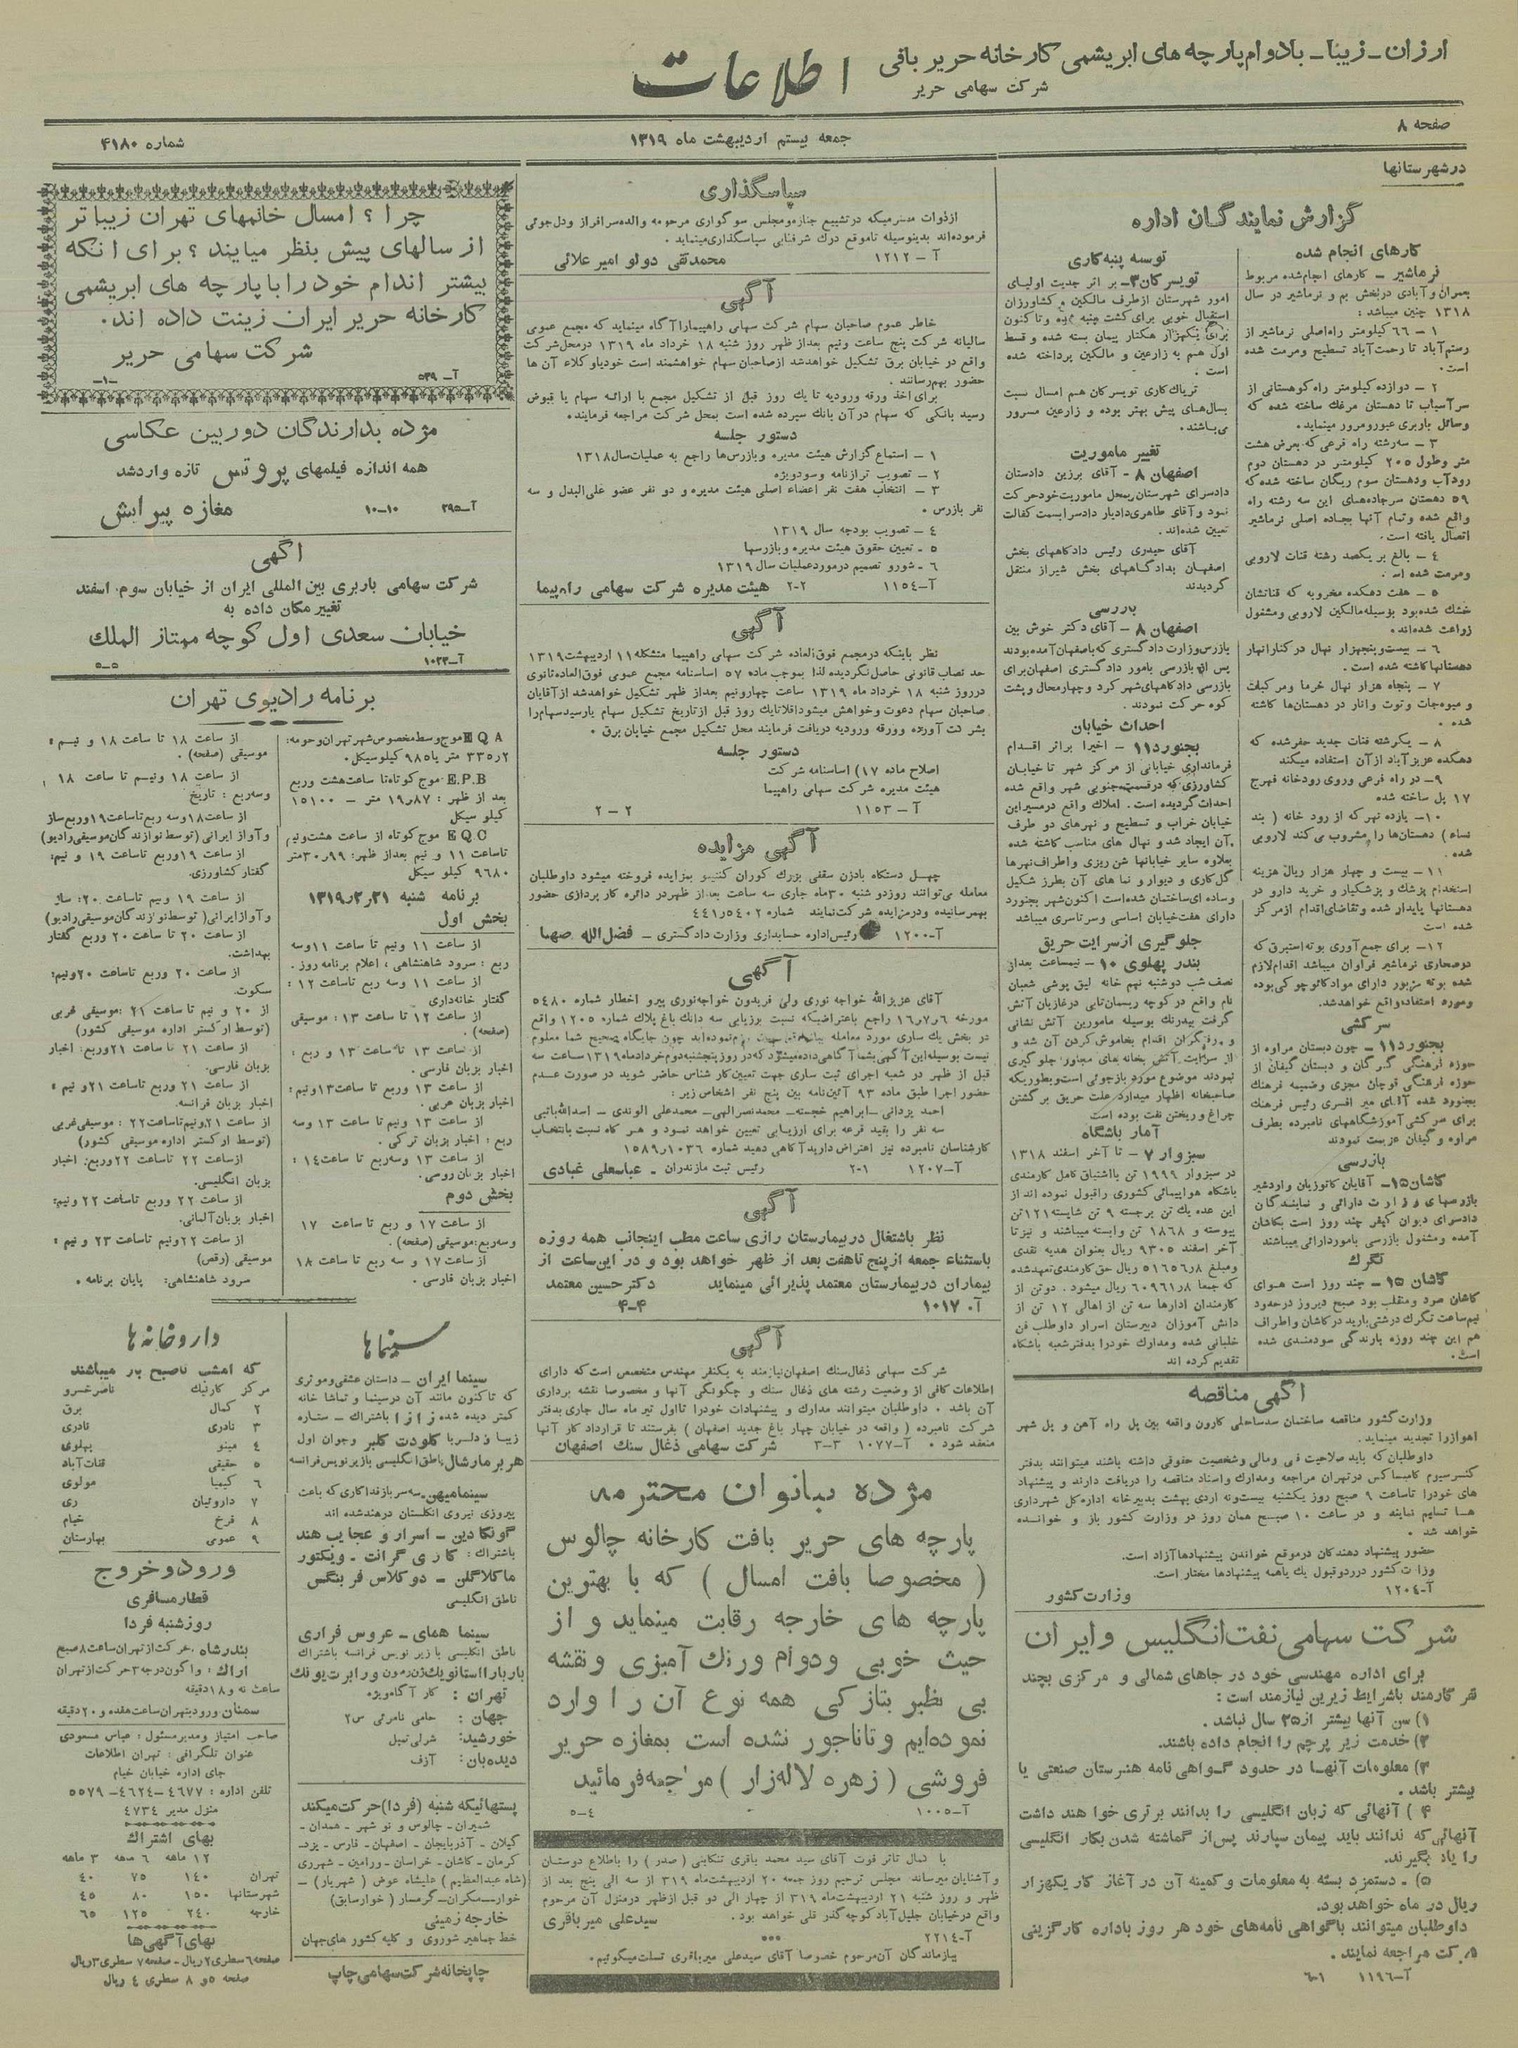 ارزان ـ زیبا ـ بادوام پارچه های ابریشمی کارخانه حریر بافی
شرکت سهامی حریر
اطلاعات
صفحه ۸
جمعه بیستم اردیبهشت ماه ۱۳۱۹
شماره ۴۱۸۰
در شهرستانها
گزارش نمایندگان اداره
کارهای انجام شده
نرماشیر ـ کارهای انجام شده مربوط
بعمران و آبادی در بخش بم و نرماشیر در سال
۱۳۱۸ چنین میباشد :
۱ ـ ۶۶ کیلومتر راه اصلی نرماشیر از
رستم آباد تا رحمت آباد تسطیح و مرمت شده
است .
۲ ـ دوازده کیلومتر راه کوهستانی از
سرآسیاب تا دهستان مرغک ساخته شده که
وسائل باربری عبور و مرور مینماید .
۳ ـ سه رشته راه فرعی که بعرض هشت
متر وطول ۲۰۵ کیلومتر در دهستان دوم
رودآب و دهستان سوم ریگان ساخته شده که
۵۹ دهستان سر جاده های این سه رشته راه
واقع شده و تمام آنها بجاده اصلی نرماشیر
اتصال یافته است .
۴ ـ بالغ بر یکصد رشته قنات لاروبی
ومرمت شده است .
۵ ـ هفت دهکده مخروبه که قناتشان
خشک شده بود بوسیله مالکین لاروبی و مشغول
زراعت شده اند .
۶ ـ بیست و پنجهزار نهال در کنار انهار
دهستانها کاشته شده است .
۷ ـ پنجاه هزار نهال خرما و مرکبات
و میوه جات و توت و انار در دهستان ها کاشته
شده .
۸ ـ یکرشته قنات جدید حفر شده که
دهکده عزیزآباد از آن استفاده میکند
۹ ـ در راه فرعی وروی رودخانه فهرج
۱۷ پل ساخته شده
۱۰ ـ یازده نهر که از رود خانه ( بند
نساء ) دهستان ها را مشروب می کند لاروبی
شده .
۱۱ ـ بیست و چهار هزار ریال هزینه
استخدام پزشک و پزشکیار و خرید دارو در
دهستانها پایدار شده و تقاضای اقدام از مرکز
شده است
۱۲ ـ برای جمع آوری بوته استبرق که
در صحاری نرماشیر فراوان میباشد اقدام لازم
شده بوته مزبور دارای مواد کائوچوکی بوده
و مورد استفاده واقع خواهد شد.
سرکشی
بجنورد ۱۱ ـ چون دبستان مراوه از
حوزه فرهنگی گرگان و دبستان گیفان از
حوزه فرهنگی قوچان مجزی و ضمیمه فرهنگ
بجنورد شده آقای میر افسری رئیس فرهنگ
برای سر کشی آموزشگاههای نامبرده بطرف
مراوه و گیفان عزیمت نمودند
بازرسی
کاشان ۱۵ ـ آقایان کاتوزیان و اردشیر
بازرسهای وزارت دارائی و نمایندگان
دادسرای دیوان کیفر چند روز است بکاشان
آمده و مشغول بازرسی بامور دارائی میباشند
تگرگ
کاشان ۱۵ ـ چند روز است هوای
کاشان سرد و منقلب بود صبح دیروز در حدود
نیم ساعت تگرگ درشتی بارید در کاشان و اطراف
هم این چند روزه بارندگی سودمندی شده
است .
توسه پنبه کاری
تویسرکان ۳ ـ بر اثر جدیت اولیای
امور شهرستان از طرف مالکین و کشاورزان
استقبال خوبی برای کشت پنبه شده و تاکنون
برای یکهزار هکتار پیمان بسته شده و قسط
اول هم به زارعین و مالکین پرداخته شده
است .
تریاک کاری تویسرکان هم امسال نسبت
بسال های پیش بهتر بوده و زارعین مسرور
می باشند .
تغییر ماموریت
اصفهان ۸ ـ آقای برزین دادستان
دادسرای شهرستان بمحل ماموریت خود حرکت
نمود و آقای طاهری دادیار دادسرا بسمت کفالت
تعیین شده اند .
آقای حیدری رئیس دادگاههای بخش
اصفهان بدادگاههای بخش شیراز منتقل
گردیدند
بازرسی
اصفهان ۸ ـ آقای دکتر خوش بین
بازرس وزارت دادگستری که باصفهان آمده بودند
پس از بازرسی بامور دادگستری اصفهان برای
بازرسی دادگاههای شهر کرد و چهارمحال و پشت
کوه حرکت نمودند .
احداث خیابان
بجنورد ۱۱ ـ اخیرا براثر اقدام
فرمانداری خیابانی از مرکز شهر تا خیابان
کشاورزی که در قسمت جنوبی شهر واقع شده
احداث گردیده است . املاک واقع در مسیر این
خیابان خراب و تسطیح و نهرهای دو طرف
آن ایجاد شد و نهال های مناسب کاشته شده
بعلاوه سایر خیابانها شن ریزی و اطراف نهرها
گل کاری و دیوار و نما های آن بطرز شکیل
وساده ای ساختمان شده است اکنون شهر بجنورد
دارای هفت خیابان اساسی و سرتاسری میباشد
جلوگیری از سرایت حریق
بندر پهلوی ۱۰ ـ نیمساعت بعد از
نصف شب دوشنبه نهم خانه لیق پوشی شعبان
نام واقع در کوچه ریسمان تابی در غازیان آتش
گرفت بیدرنگ بوسیله مامورین آتش نشانی
و رفتگران اقدام بخاموش کردن آن شد و
از سرایت آتش بخانه های مجاور جلوگیری
نمودند موضوع مورد بازجوئی است و بطوریکه
صاحبخانه اظهار میدارد علت حریق برگشتن
چراغ و ریختن نفت بوده است
آمار باشگاه
سبزوار ۷ ـ تا آخر اسفند ۱۳۱۸
در سبزوار ۱۹۹۹ تن با اشتیاق کامل کارمندی
باشگاه هواپیمائی کشوری را قبول نموده اند از
این عده یک تن برجسته ۹ تن شایسته ۱۲۱ تن
پیوسته و ۱۸۶۸ تن وابسته میباشند و نیز تا
آخر اسفند ۹۳۰۵ ریال بعنوان هدیه نقدی
ومبلغ ۵۱۶۵۶٫۸ ریال حق کارمندی تعهد شده
که جمعا ۶۰۹۶۱٫۸ ریال میشود . دو تن از
کارمندان ادارها سه تن از اهالی ۱۲ تن از
دانش آموزان دبیرستان اسرار داوطلب فن
خلبانی شده و مدارک خود را بدفتر شعبه باشگاه
تقدیم کرده اند
آگهی مناقصه
وزارت کشور مناقصه ساختمان سد ساحلی کارون واقعه بین پل راه آهن و پل شهر
اهواز را تجدید مینماید .
داوطلبان که باید صلاحیت فنی و مالی و شخصیت حقوقی داشته باشند میتوانند بدفتر
کنسرسیوم کامپساکس در تهران مراجعه و مدارک و اسناد مناقصه را دریافت دارند و پیشنهاد
های خود را تا ساعت ۹ صبح روز یکشنبه بیست و نه اردی بهشت بدبیرخانه اداره کل شهرداری
ها تسلیم نمایند و در ساعت ۱۰ صبح همان روز در وزارت کشور باز و خوانده
خواهد شد .
حضور پیشنهاد دهندگان در موقع خواندن پیشنهادها آزاد است .
وزارت کشور در رد و قبول یک یا همه پیشنهادها مختار است .
آ ـ ۱۲۰۴ وزارت کشور
شرکت سهامی نفت انگلیس و ایران
برای اداره مهندسی خود در جاهای شمالی و مرکزی بچند
نفر کارمند باشرایط زیرین نیازمند است :
۱) سن آنها بیشتر از ۳۵ سال نباشد .
۲) خدمت زیر پرچم را انجام داده باشند .
۳) معلومات آنها در حدود گواهی نامه هنرستان صنعتی یا
بیشتر باشد .
۴ ) آنهائی که زبان انگلیسی را بدانند برتری خواهند داشت
آنهائی که ندانند باید پیمان سپارند پس از گماشته شدن بکار انگلیسی
را یاد بگیرند .
۵) ـ دستمزد بسته به معلومات و کمینه آن در آغاز کار یکهزار
ریال در ماه خواهد بود .
داوطلبان میتوانند با گواهی نامه های خود هر روز باداره کارگزینی
شرکت مراجعه نمایند .
آ ـ ۱۱۹۶ ۱ـ۶
سپاسگذاری
از ذوات محترمیکه در تشییع جنازه و مجلس سوگواری مرحومه والده سرافراز و دل جوئی
فرموده اند بدینوسیله تا موقع درک شرفیابی سپاسگذاری مینماید .
آ ـ ۱۲۱۲ محمد تقی دولو امیر علائی
آگهی
خاطر عموم صاحبان سهام شرکت سهامی راهپیما را آگاه مینماید که مجمع عمومی
سالیانه شرکت پنج ساعت ونیم بعد از ظهر روز شنبه ۱۸ خرداد ماه ۱۳۱۹ در محل شرکت
واقع در خیابان برق تشکیل خواهد شد از صاحبان سهام خواهشمند است خود یا وکلاء آن ها
حضور بهم رسانند .
برای اخذ ورقه ورودیه تا یک روز قبل از تشکیل مجمع با ارائه سهام یا قبوض
رسید بانکی که سهام در آن بانک سپرده شده است بمحل شرکت مراجعه فرمایند .
دستور جلسه
۱ ـ استماع گزارش هیئت مدیره و بازرس ها راجع به عملیات سال ۱۳۱۸
۲ ـ تصویب ترازنامه و سود ویژه
۳ ـ انتخاب هفت نفر اعضاء اصلی هیئت مدیره و دو نفر عضو علی البدل و سه
نفر بازرس .
۴ ـ تصویب بودجه سال ۱۳۱۹
۵ ـ تعیین حقوق هیئت مدیره و بازرسها
۶ ـ شور و تصمیم در مورد عملیات سال ۱۳۱۹
آ ـ ۱۱۵۴ ۲ـ۲ هیئت مدیره شرکت سهامی راه پیما
آگهی
نظر باینکه در مجمع فوق العاده شرکت سهامی راهپیما متشکله ۱۱ اردیبهشت ۱۳۱۹
حد نصاب قانونی حاصل نگردیده لذا بموجب ماده ۵۷ اساسنامه مجمع عمومی فوق العاده ثانوی
در روز شنبه ۱۸ خرداد ماه ۱۳۱۹ ساعت چهار ونیم بعد از ظهر تشکیل خواهد شد از آقایان
صاحبان سهام دعوت و خواهش میشود اقلا تا یک روز قبل از تاریخ تشکیل سهام یا رسید سهام را
بشرکت آورده و ورقه ورودیه دریافت فرمایند محل تشکیل مجمع خیابان برق .
دستور جلسه
اصلاح ماده ۱۷) اساسنامه شرکت
هیئت مدیره شرکت سهامی راهپیما
آ ـ ۱۱۵۳ ۲ ـ ۲
آگهی مزایده
چهل دستگاه بادزن سقفی بزرگ کوران کنتینو بمزایده فروخته میشود داوطلبان
معامله می توانند روز دو شنبه ۳۰ ماه جاری سه ساعت بعد از ظهر در دائره کار پردازی حضور
بهم رسانیده و در مزایده شرکت نمایند شماره ۴۴۱٫۵۴۰۲
آ ـ ۱۲۰۰ رئیس اداره حسابداری وزارت دادگستری ـ فضل الله صهبا
آگهی
آقای عزیزالله خواجه نوری ولی فریدون خواجه نوری پیرو اخطار شماره ۵۴۸۰
مورخه ۱۶٫۷٫۶ راجع باعتراضیکه نسبت برزیابی سه دانگ باغ پلاک شماره ۱۲۰۵ واقع
در بخش یک ساری مورد معامله نموده اید چون جایگاه صحیح شما معلوم
نیست بوسیله این آگهی بشما آگاهی داده میشود که در روز پنجشنبه دوم خرداد ماه ۱۳۱۹ ساعت سه
قبل از ظهر در شعبه اجرای ثبت ساری جهت تعیین کارشناس حاضر شوید در صورت عدم
حضور اجرا طبق ماده ۹۳ آئین نامه بین پنج نفر اشخاص زیر :
احمد یزدانی ـ ابراهیم خجسته ـ محمد نصرالهی ـ محمد علی الوندی ـ اسدالله باتبی
سه نفر را بقید قرعه برای ارزیابی تعیین خواهد نمود و هر گاه نسبت بانتخاب
کارشناسان نامبرده نیز اعتراض دارید آگاهی دهید شماره ۱۵۸۹٫۱۰۳۶
آ ـ ۱۲۰۷ ۱ـ۲ رئیس ثبت مازندران ـ عباسعلی غبادی
آگهی
نظر باشتغال در بیمارستان رازی ساعت مطب اینجانب همه روزه
باستثناء جمعه از پنج تا هفت بعد از ظهر خواهد بود و در این ساعت از
بیماران در بیمارستان معتمد پذیرائی مینماید دکتر حسین معتمد
آ. ۱۰۱۷ ۴ـ۴
آگهی
شرکت سهامی ذغال سنگ اصفهان نیازمند به یکنفر مهندس متخصص است که دارای
اطلاعات کافی از وضعیت رشته های ذغال سنگ و چگونگی آنها و مخصوصا نقشه برداری
آن باشد . داوطلبان میتوانند مدارک و پیشنهادات خود را تا اول تیر ماه سال جاری بدفتر
شرکت نامبرده ( واقعه در خیابان چهار باغ جدید اصفهان ) بفرستند تا قرارداد کار آنها
منعقد شود . آ ـ ۱۰۷۷ ۳ـ۳ شرکت سهامی ذغال سنگ اصفهان
مژده ببانوان محترمه
پارچه های حریر بافت کارخانه چالوس
( مخصوصا بافت امسال ) که با بهترین
پارچه های خارجه رقابت مینماید و از
حیث خوبی و دوام و رنگ آمیزی و نقشه
بی نظیر بتازگی همه نوع آن را وارد
نموده ایم و تا ناجور نشده است بمغازه حریر
فروشی ( زهره لاله زار ) مراجعه فرمائید
آ ـ ۱۰۰۵ ۴ـ۵
با کمال تاثر فوت آقای سید محمد باقری تنکابنی ( صدر ) را باطلاع دوستان
و آشنایان میرساند مجلس ترحیم روز جمعه ۲۰ اردیبهشت ماه ۳۱۹ از سه الی پنج بعد از
ظهر و روز شنبه ۲۱ اردیبهشت ماه ۳۱۹ از چهار الی دو قبل از ظهر در منزل آن مرحوم
واقع در خیابان جلیل آباد کوچه گذر قلی خواهد بود .
آ ـ ۲۲۱۴ سید علی میر باقری
بازماندگان آن مرحوم خصوصا آقای سید علی میر باقری تسلیت میگوئیم .
چرا ؟ امسال خانمهای تهران زیبا تر
از سالهای پیش بنظر میایند ؟ برای انکه
بیشتر اندام خود را با پارچه های ابریشمی
کارخانه حریر ایران زینت داده اند .
شرکت سهامی حریر
آ ـ ۵۳۹ ـ۱ـ
مژده بدارندگان دوربین عکاسی
همه اندازه فیلمهای پروتس تازه وارد شد
آ ـ ۳۹۵ ۱۰ـ۱۰ مغازه پیرایش
آگهی
شرکت سهامی باربری بین المللی ایران از خیابان سوم اسفند
تغییر مکان داده به
خیابان سعدی اول کوچه ممتاز الملک
آ ـ ۱۰۲۳ ۵ـ۵
برنامه رادیوی تهران
E Q A موج وسط مخصوص شهر تهران و حومه :
۳۳۵٫۲ متر یا ۹۸۵ کیلو سیکل .
E.P.B موج کوتاه تا ساعت هشت و ربع
بعد از ظهر : ۱۹٫۸۷ متر ـ ۱۵۱۰۰
کیلو سیکل
E Q C موج کوتاه از ساعت هشت ونیم
تا ساعت ۱۱ و نیم بعد از ظهر : ۳۰٫۹۹ متر
۹۶۸۰ کیلو سیکل
برنامه شنبه ۱۳۱۹٫۲٫۲۱
بخش اول
از ساعت ۱۱ ونیم تا ساعت ۱۱ وسه
ربع : سرود شاهنشاهی ، اعلام برنامه روز .
از ساعت ۱۱ وسه ربع تا ساعت ۱۲ :
گفتار خانه داری
از ساعت ۱۲ تا ساعت ۱۳ : موسیقی
(صفحه) .
از ساعت ۱۳ تا ساعت ۱۳ و ربع :
اخبار بزبان فارسی .
از ساعت ۱۳ وربع تا ساعت ۱۳ ونیم :
اخبار بزبان عربی .
از ساعت ۱۳ ونیم تا ساعت ۱۳ وسه
ربع : اخبار بزبان ترکی .
از ساعت ۱۳ وسه ربع تا ساعت ۱۴ :
اخبار بزبان روسی .
بخش دوم
از ساعت ۱۷ و ربع تا ساعت ۱۷
وسه ربع : موسیقی (صفحه) .
از ساعت ۱۷ و سه ربع تا ساعت ۱۸
اخبار بزبان فارسی .
از ساعت ۱۸ تا ساعت ۱۸ و نیم :
موسیقی (صفحه) .
از ساعت ۱۸ ونیم تا ساعت ۱۸
وسه ربع : تاریخ
از ساعت ۱۸ وسه ربع تا ساعت ۱۹ وربع ساز
و آواز ایرانی (توسط نوازندگان موسیقی رادیو)
از ساعت ۱۹ وربع تا ساعت ۱۹ و نیم :
گفتار کشاورزی .
از ساعت ۱۹ ونیم تا ساعت ۲۰ : ساز
و آواز ایرانی ( توسط نوازندگان موسیقی رادیو )
از ساعت ۲۰ تا ساعت ۲۰ وربع گفتار
بهداشت .
از ساعت ۲۰ وربع تا ساعت ۲۰ ونیم :
سکوت .
از ۲۰ و نیم تا ساعت ۲۱ : موسیقی غربی
(توسط ارکستر اداره موسیقی کشور)
از ساعت ۲۱ تا ساعت ۲۱ وربع : اخبار
بزبان فارسی .
از ساعت ۲۱ وربع تا ساعت ۲۱ و نیم :
اخبار بزبان فرانسه .
از ساعت ۲۱ ونیم تا ساعت ۲۲ : موسیقی غربی
(توسط ارکستر اداره موسیقی کشور)
از ساعت ۲۲ تا ساعت ۲۲ وربع : اخبار
بزبان انگلیسی .
از ساعت ۲۲ وربع تا ساعت ۲۲ ونیم :
اخبار بزبان آلمانی .
از ساعت ۲۲ ونیم تا ساعت ۲۳ و نیم :
موسیقی (رقص)
سرود شاهنشاهی : پایان برنامه .
سینماها
سینما ایران ـ داستان عشقی و موثری
که تاکنون مانند آن در سینما و تماشا خانه
کمتر دیده شده زازا باشتراک ـ ستاره
زیبا و دلربا کلودت کلبر و جوان اول
هربر مارشال ناطق انگلیسی با زیر نویس فرانسه
سینما میهن ـ سه سرباز فداکاری که باعث
پیروزی نیروی انگلستان در هند شده اند
گونگادین ـ اسرار و عجایب هند
باشتراک : کاری گرانت ـ ویکتور
ماکلاگلن ـ دوگلاس فربنگس
ناطق انگلیسی
سینما همای ـ عروس فراری
ناطق انگلیسی با زیر نویس فرانسه باشتراک
باربارا استانویک ژن رمون و رابرت یونگ
تهران : کار آگاه ویژه
جهان : حامی نامرئی س۲
خورشید : شرلی تمپل
دیده بان : آزف
پستهائیکه شنبه (فردا) حرکت میکند
شمیران ـ چالوس و نو شهر ـ همدان ـ
گیلان ـ آذربایجان ـ اصفهان ـ فارس ـ یزد ـ
کرمان ـ کاشان ـ خراسان ـ ورامین ـ شهر ری
(شاه عبدالعظیم ) علیشاه عوض ( شهریار) ـ
خوار ـ مکران ـ گرمسار ( خوار سابق)
خارجه زمینی
خط جماهیر شوروی و کلیه کشور های جهان
چاپخانه شرکت سهامی چاپ
داروخانه ها
که امشب تا صبح باز میباشند
مرکز کارنیک ناصر خسرو
۲ کمال برق
۳ نادری نادری
۴ مینو پهلوی
۵ حقیقی قنات آباد
۶ کیمیا مولوی
۷ داروئیان ری
۸ فرخ خیام
۹ عمومی بهارستان
ورود و خروج
قطار مسافری
روز شنبه فردا
بندر شاه . حرکت از تهران ساعت ۸ صبح
اراک : واگون درجه ۳ حرکت از تهران
ساعت نه و ۱۸ دقیقه
سمنان ورود بتهران ساعت هفده و ۲۰ دقیقه
صاحب امتیاز و مدیر مسئول : عباس مسعودی
عنوان تلگرافی : تهران اطلاعات
جای اداره خیابان خیام
تلفن اداره : ۴۶۷۷ ـ ۴۶۲۴ ـ ۵۵۷۹
منزل مدیر ۴۷۳۴
بهای اشتراک
۱۲ ماهه ۶ مهه ۳ ماهه
تهران ۱۴۰ ۷۵ ۴۰
شهرستانها ۱۵۰ ۸۰ ۴۵
خارجه ۲۴۰ ۱۲۵ ۶۵
بهای آگهی ها
صفحه ۶ سطری ۲ ریال ـ صفحه ۷ سطری ۳ ریال
صفحه ۵ و ۸ سطری ۴ ریال